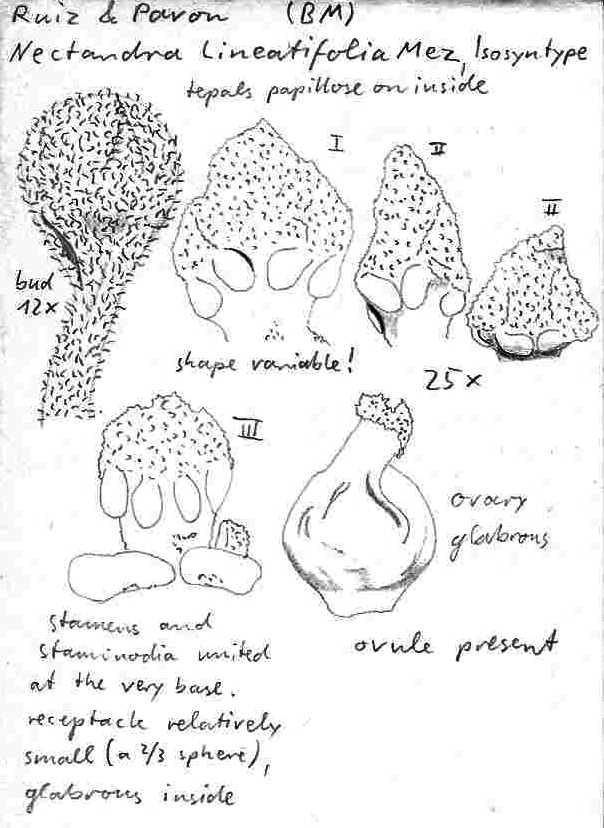 Ruiz & Pavon (BM)
Nectandra Lineatifolia Mez, Isosyntype
tepals papillose on inside
I
II
II
bud
12x
shape variable!
25x
III
ovary
glabrous
stamens and
staminodia united
at the very base.
receptacle relatively
small (a 2/3 sphere),
glabrous inside
ovule present